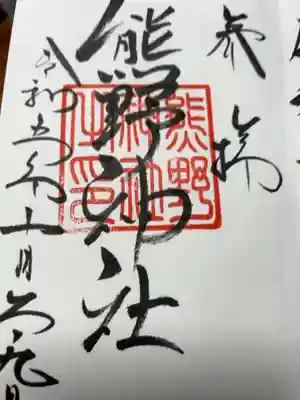 奉拝
熊野神社
熊野神社之印
令和五年十一月 九日